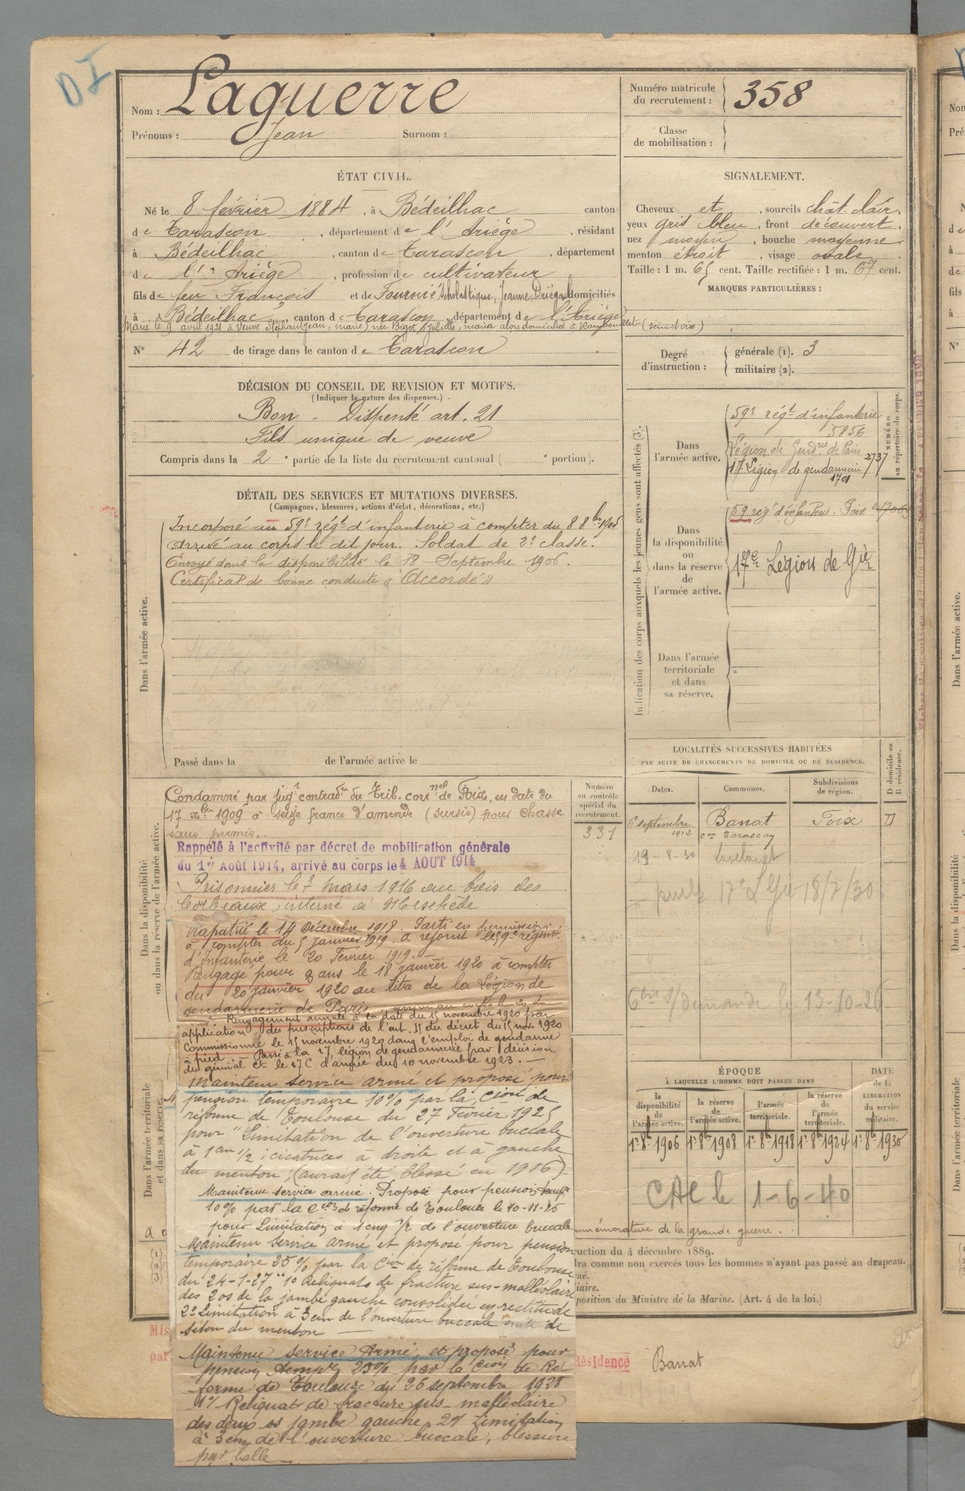 DI
Nom : Laguerre
Prénoms : Jean Surnom :
Numéro matricule du recrutement : 358
Classe de mobilisation :
ÉTAT CIVIL.
Né le 8 février 1884, à Bédeilhac canton
de Tarascon, département de l'Ariège, résidant
à Bédeilhac, canton de Tarascon, département
de l'Ariège, profession de cultivateur
fils de feu François et de Fournié Scholastique, Jeanne domiciliés
à Bédeilhac, canton de Tarascon, département de l'Ariège
Marié le 9 avril 1921 à Veuve
N° 42 de tirage dans le canton de Tarascon
SIGNALEMENT.
Cheveux et, sourcils chât. clair.
yeux gris bleu, front découvert.
nez moyen, bouche moyenne
menton étroit, visage ovale
Taille : 1 m. 65 cent. Taille rectifiée : 1 m. 67 cent.
MARQUES PARTICULIÈRES :
Degré d'instruction : générale (1). 3
militaire (2).
DÉCISION DU CONSEIL DE REVISION ET MOTIFS.
(Indiquer la nature des dispenses.)
Bon - Dispensé art. 21
Fils unique de veuve
Compris dans la 2e partie de la liste du recrutement cantonal ( e portion).
DÉTAIL DES SERVICES ET MUTATIONS DIVERSES.
(Campagnes, blessures, actions d'éclat, décorations, etc.)
Dans l'armée active.
Incorporé au 59e régt d'infanterie à compter du 8 8bre 1905
Arrivé au corps le dit jour. Soldat de 2e classe.
Envoyé dans la disponibilité le 18 Septembre 1906.
Certificat de bonne conduite "Accordé"
Passé dans la de l'armée active le
Indication des corps auxquels les jeunes gens sont affectés (3).
NUMÉRO au répertoire du corps.
Dans l'armée active.
59e régt d'infanterie
5856
Légion de Gendrie de Paris 2737
17e Légion de gendarmerie
1701
Dans la disponibilité ou dans la réserve de l'armée active.
59 régt d'infanterie. Foix
17e Légion de Gie
Dans l'armée territoriale et dans sa réserve.
LOCALITÉS SUCCESSIVES HABITÉES
PAR SUITE DE CHANGEMENTS DE DOMICILE OU DE RÉSIDENCE.
Dates. Communes. Subdivisions de région. D domicile ou R résidence.
6 septembre 1912 Banat con Tarascon Foix D
19-8-30 Lavelanet
17e LGie 18/7/30
le 13-10-26
Numéro au contrôle spécial du recrutement.
331
Dans la disponibilité ou dans la réserve de l'armée active.
Condamné par jugt contradre du Trib. cornel de Foix, en date du
17 Xbre 1909 à seize francs d'amende (sursis) pour chasse
sans permis.
Rappelé à l'activité par décret de mobilisation générale
du 1er Août 1914, arrivé au corps le 4 AOUT 1914
Prisonnier le 7 mars 1916 au bois des
Corbeaux, interné à Meschède
rapatrié le 14 Décembre 1918. Parti en permission
à compter du 5 janvier 1919. a rejoint le 59e régiment
d'infanterie le 20 Février 1919.
Rengagé pour 3 ans le 18 janvier 1920 à compter
du 20 janvier 1920 au titre de la Légion de
gendarmerie de Paris
Rengagement annulé à la date du 15 novembre 1920 par
application des prescriptions de l'art. 11 du décret du 5 nov. 1920
Commissionné le 15 novembre 1920 dans l'emploi de gendarme
à pied. Passé à la 17e légion de gendarmerie par décision
du général Ct le 17e C. d'armée du 10 novembre 1923.
Maintenu service armé et proposé pour
pension temporaire 10% par la Cion de
réforme de Toulouse du 27 Février 1925
pour "Limitation de l'ouverture buccale
à 1 cm 1/2 : cicatrices à droite et à gauche
du menton, (aurait été blessé en 1916)
Maintenu service armé. Proposé pour pension tempre
10% par la Cion de réforme de Toulouse le 10-11-26
pour Limitation à 1 cm 1/2 de l'ouverture buccale
Maintenu Service Armé et proposé pour pension
temporaire 25% par la Cion de réforme de Toulouse
du 24-1-27 "1° Reliquats de fracture sus-malléolaire
des 2 os de la jambe gauche consolidée en rectitude
2° Limitation à 3 cm de l'ouverture buccale suite de
séton du menton
Maintenu Service Armé, et proposé pour
pension tempre 25% par la Cion de Ré-
forme de Toulouse du 26 septembre 1928
1° Reliquat de fracture sus-malléolaire
des deux os jambe gauche. 2° Limitation
à 3 cm de l'ouverture buccale, blessure
par balle
Dans l'armée territoriale et dans sa réserve.
ÉPOQUE
À LAQUELLE L'HOMME DOIT PASSER DANS
DATE de la LIBÉRATION du service militaire.
la disponibilité de l'armée active. la réserve de l'armée active. l'armée territoriale. la réserve de l'armée territoriale.
1er 8bre 1906 1er 8bre 1908 1er 8bre 1918 1er 8bre 1924 1er 8bre 1930
CAC le 1-6-40
commémorative de la grande guerre.
ruction du 4 décembre 1889.
dra comme non exercés tous les hommes n'ayant pas passé au drapeau.
position du Ministre de la Marine. (Art. 4 de la loi.)
Résidence Banat